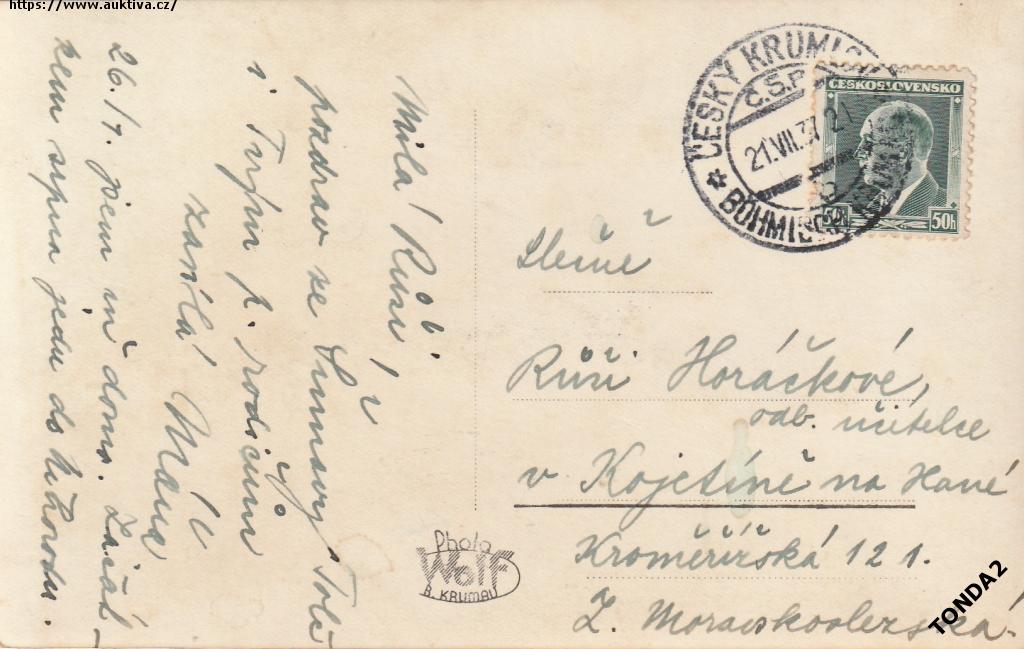 https://www.auktiva.cz/
Milá Růži,
pozdrav ze Šumavy Tobě
i Tvým p. rodičům
zasílá Mána
26./7. jsem už doma. Začát-
kem srpna jedu do Užhorodu.
ČESKÝ KRUMLOV
Č.S.P.
21.VII.37
BÖHMISCH KRUMAU
ČESKOSLOVENSKO
50h
Slečně
Růži Horáčkové,
odb. učitelce
v Kojetíně na Hané
Kroměřížská 121.
Z. Moravskoslezská.
Photo
Wolf
B. KRUMAU
TONDA2